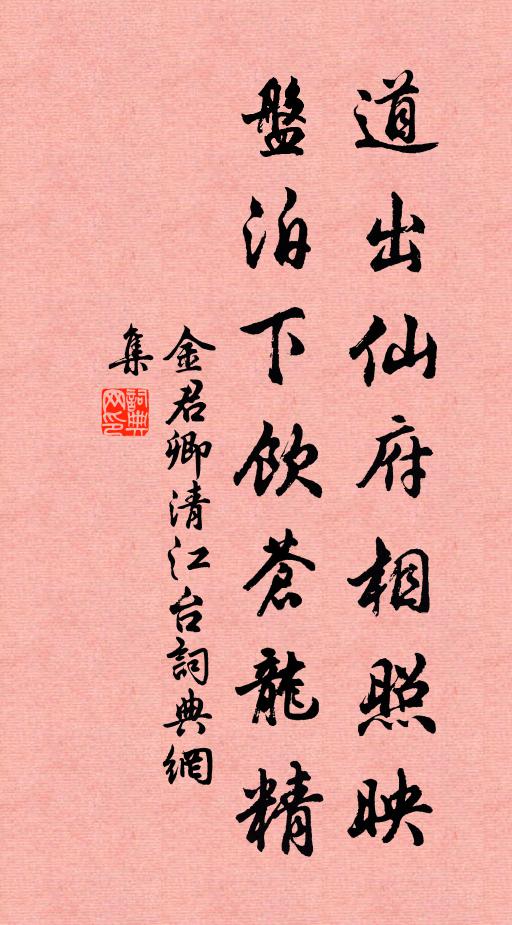 道出仙府相照映
盤泊下飲蒼龍精
金君卿清江台詞典網
集
詞典
网印